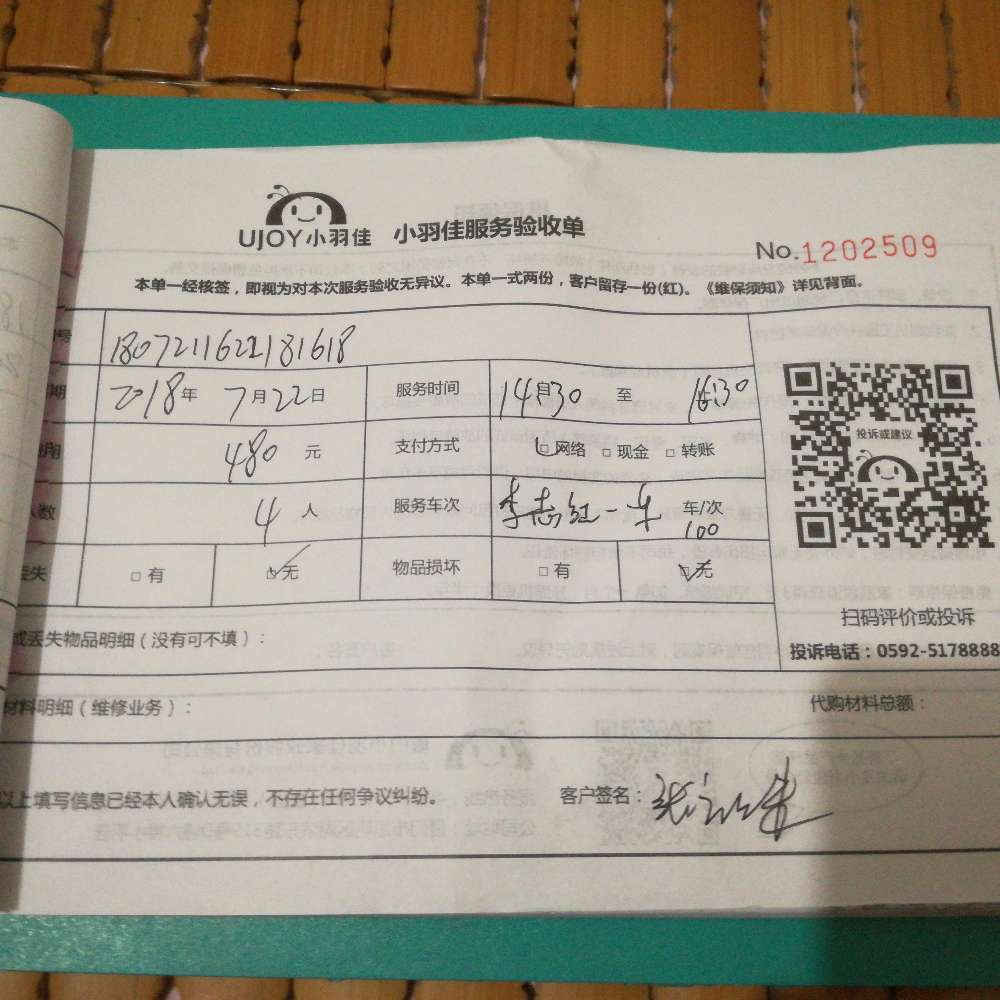 UJOY小羽佳 小羽佳服务验收单
No.1202509
本单一经核签，即视为对本次服务验收无异议。本单一式两份，客户留存一份(红)。《维保须知》详见背面。
号 1807211622181618
期 2018年 7月22日 服务时间 14:30 至 16:30
用 480 元 支付方式 □网络 □现金 □转账
人数 4 人 服务车次 李志红一车 车/次 100
丢失 □有 □无 物品损坏 □有 □无
投诉或建议
扫码评价或投诉
投诉电话：0592-5178888
或丢失物品明细（没有可不填）：
材料明细（维修业务）： 代购材料总额：
以上填写信息已经本人确认无误，不存在任何争议纠纷。 客户签名：